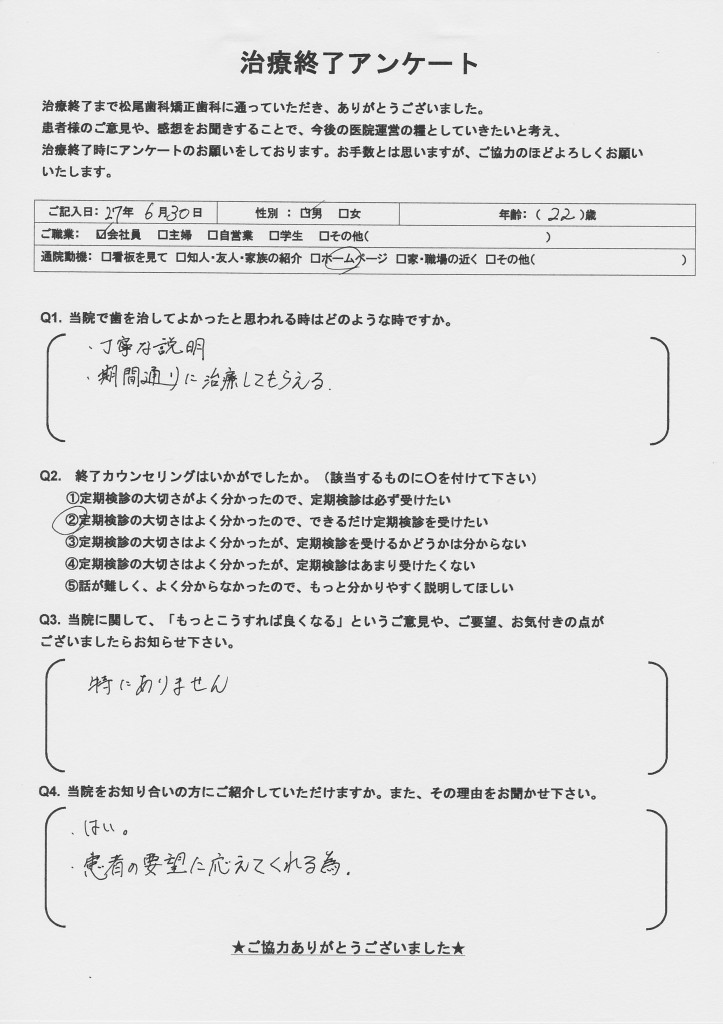 治療終了アンケート
治療終了まで松尾歯科矯正歯科に通っていただき、ありがとうございました。
患者様のご意見や、感想をお聞きすることで、今後の医院運営の糧としていきたいと考え、
治療終了時にアンケートのお願いをしております。お手数とは思いますが、ご協力のほどよろしくお願い
いたします。
ご記入日： 27年 6月30日 性別 ： ☑男 □女 年齢：（ 22 ）歳
ご職業： ☑会社員 □主婦 □自営業 □学生 □その他（ ）
通院動機：□看板を見て □知人・友人・家族の紹介 □ホームページ □家・職場の近く □その他（ ）
Q1. 当院で歯を治してよかったと思われる時はどのような時ですか。
・丁寧な説明
・期間通りに治療してもらえる.
Q2. 終了カウンセリングはいかがでしたか。（該当するものに〇を付けて下さい）
①定期検診の大切さがよく分かったので、定期検診は必ず受けたい
②定期検診の大切さはよく分かったので、できるだけ定期検診を受けたい
③定期検診の大切さはよく分かったが、定期検診を受けるかどうかは分からない
④定期検診の大切さはよく分かったが、定期検診はあまり受けたくない
⑤話が難しく、よく分からなかったので、もっと分かりやすく説明してほしい
Q3. 当院に関して、「もっとこうすれば良くなる」というご意見や、ご要望、お気付きの点が
ございましたらお知らせ下さい。
特にありません
Q4. 当院をお知り合いの方にご紹介していただけますか。また、その理由をお聞かせ下さい。
・はい。
・患者の要望に応えてくれる為.
★ご協力ありがとうございました★